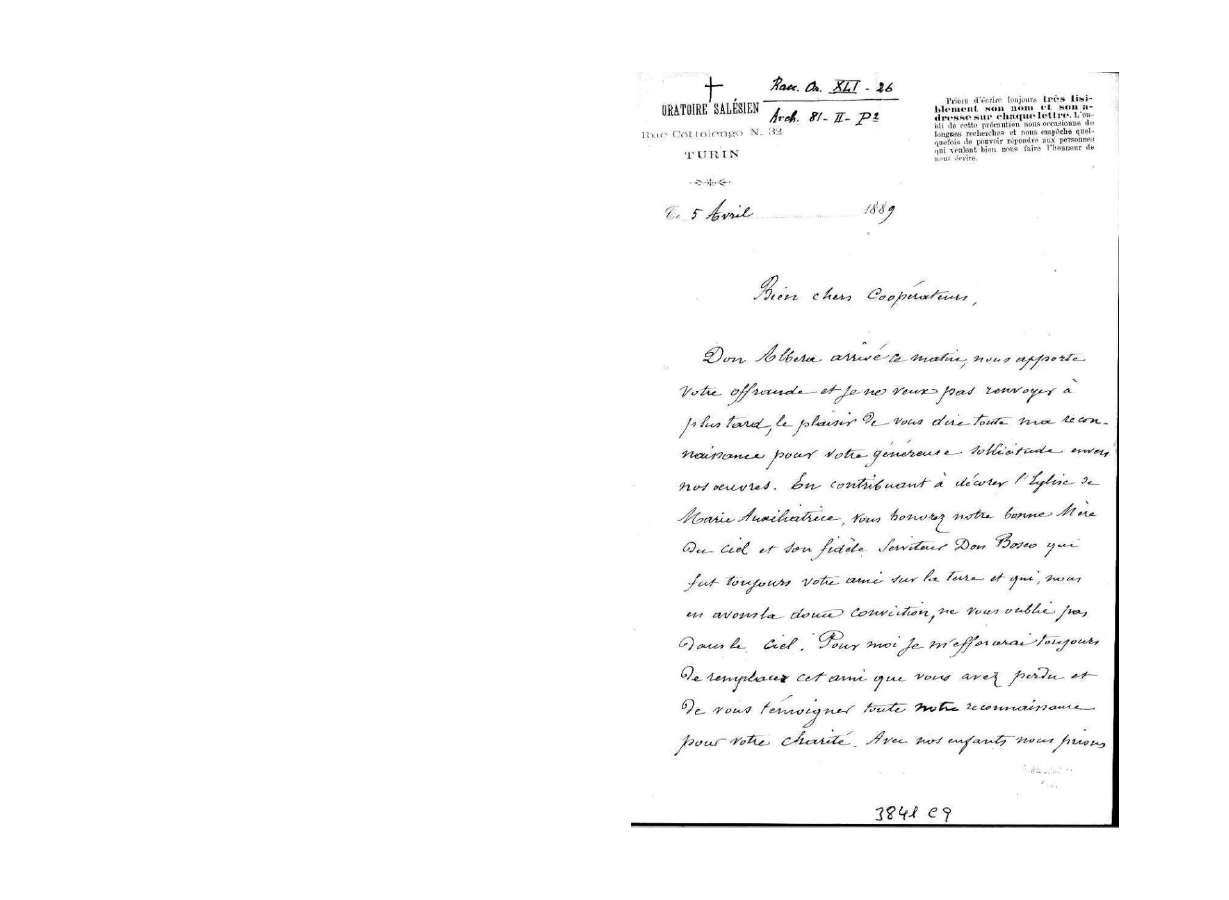 Racc. On. XLI - 26
Arch. 81 - II - P2
ORATOIRE SALÉSIEN
Rue Cottolengo N. 32
TURIN
Prière d'écrire toujours très lisi-
blement son nom et son a-
dresse sur chaque lettre. L'ou-
bli de cette précaution nous occasionne de
longues recherches et nous empêche quel-
quefois de pouvoir répondre aux personnes
qui veulent bien nous faire l'honneur de
nous écrire.
Ce 5 Avril 1889
Bien chers Coopérateurs,
Don Albera arrivé ce matin, nous apporte
votre offrande et je ne veux pas renvoyer à
plus tard, le plaisir de vous dire toute ma recon-
naissance pour votre généreuse sollicitude envers
nos œuvres. En contribuant à décorer l'Eglise de
Marie Auxiliatrice, vous honorez notre bonne Mère
du ciel et son fidèle Serviteur Don Bosco qui
fut toujours votre ami sur la terre et qui, nous
en avons la douce conviction, ne vous oublie pas
dans le ciel. Pour moi je m'efforcerai toujours
de remplacer cet ami que vous avez perdu et
de vous témoigner toute notre reconnaissance
pour votre charité. Avec nos enfants nous prions
3841 C9